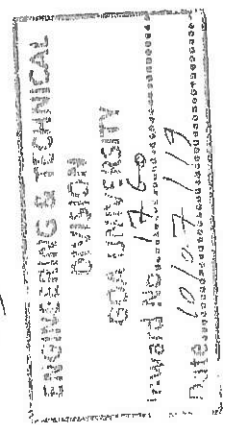 ENGINEERING & TECHNICAL
DIVISION
GOA UNIVERSITY
Inward No. 1760
Date 10/07/19